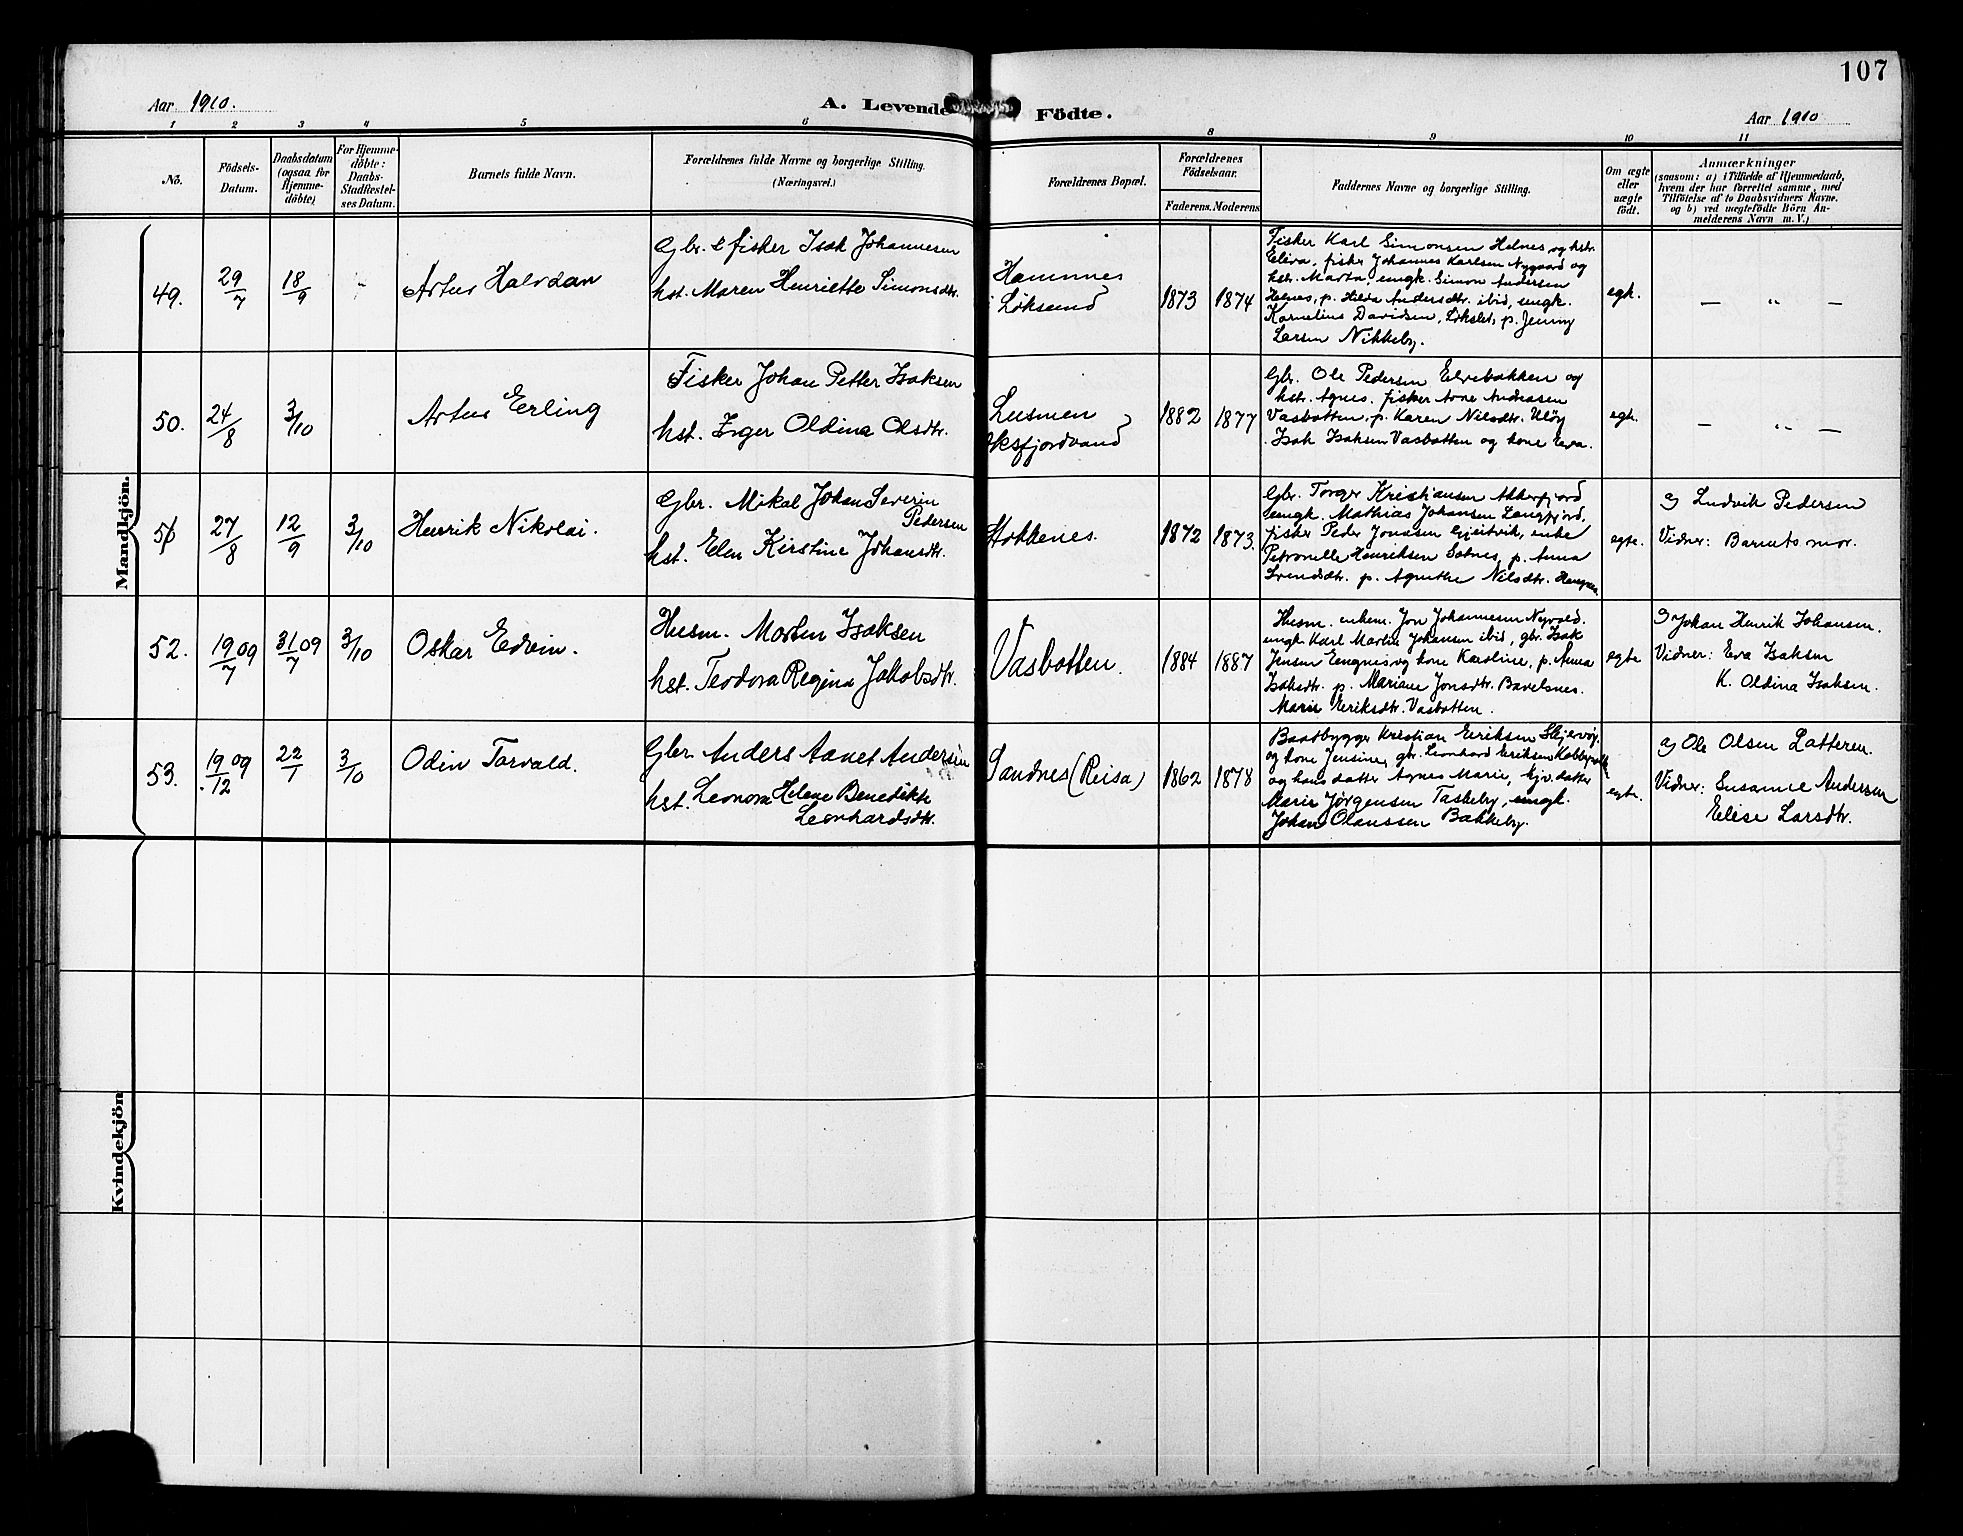 107
Aar 1910.
A. Levende Födte.
Aar 1910
1 2 3 4 5 6 8 9 10 11
No.
Födsels-
Datum.
Daabsdatum
(ogsaa for
Hjemme-
döbte)
For Hjemme-
döbte:
Daabs-
Stadfæstel-
ses Datum.
Barnets fulde Navn.
Forældrenes fulde Navne og borgerlige Stilling.
(Næringsvei.)
Forældrenes Bopæl.
Forældrenes
Födselsaar.
Faderens. Moderens
Faddernes Navne og borgerlige Stilling.
Om ægte
eller
uægte
födt.
Anmærkninger
(saasom: a) i Tilfælde af Hjemmedaab,
hvem der har forrettet samme, med
Tilföielse af to Daabsvidners Navne.
og b) ved uægtefödte Börn An-
melderens Navn m. V.)
Mandkjön.
49.
29/7
18/9
Artur Halvdan
Gbr. & fisker Isak Johannesen
hst. Maren Henriette Simonsdtr.
Hamnnes
i Löksund
1873 1874
Fisker Karl Simonsen Helnes og hstr.
Elira, fisker Johannes Karlsen Nygaard og
hstr. Marta, ungk. Simon Andersen
Helnes, p. Hilda Andersdtr. ibid, ungk.
Kornelius Davidsen, p. Jenny
Larsen Nikkeby.
egte.
— " —
50.
24/8
3/10
Artur Erling
Fisker Johan Petter Isaksen
hst. Inger Oldina Olsdtr.
Oksfjordvand
1882 1877
Gbr. Ole Pedersen Elvebakken og
hstr. Agnes, fisker Arne Andreasen
Vasbotten, p. Karen Nilsdtr. Ulöy
Isak Isaksen Vasbotten og kone Eva.
egte.
— " —
51
27/8
12/9
3/10
Henrik Nikolai.
Gbr. Mikal Johan Severin
Pedersen
hst. Elen Kirstine Johansdtr.
Stokkenes.
1872 1873.
Gbr. Torger Kristiansen Akkerfjord
ungk. Mathias Johansen Langfjord,
fisker Peder Jonasen Gjeitvik, enke
Petronelle Henriksen Sotnes, p. Anna
Svendsdtr. p. Agnethe Nilsdtr.
egte.
a) Ludvik Pedersen
Vidner: Barnets mor.
52.
19/7 09
31/7 09
3/10
Oskar Edvin.
Husm. Morten Isaksen
hst. Teodora Regina Jakobsdtr.
Vasbotten.
1884 1887
Husm. enkem. Jon Johannesen
ungk. Karl Martin Johansen ibid, gbr. Isak
Jensen og kone Karoline, p. Anna
Isaksdtr. p. Mariane Jonsdtr. Bavelsnes.
Marie Eriksdtr. Vasbotten.
egte
a) Johan Henrik Johansen.
Vidner: Eva Isaksen
K. Oldina Isaksen.
53.
19/12 09
22/1
3/10
Odin Torvald.
Gbr. Anders Aanet Andersen
hst. Leonora Helene Benedikte
Leonhardsdtr.
Sandnes (Reisa)
1862 1878
Baatbygger Kristian Eriksen Skjervöy
og kone Jensine, gbr. Leonhard Eriksen
og hans datter Agnes Marie, gjv. datter
Marie Jörgensen Taskeby, ungk.
Johan Olaussen Bakkeby.
egte.
a) Ole Olsen Latteren.
Vidner: Susanne Andersen
Elise Larsdtr.
Kvindekjön